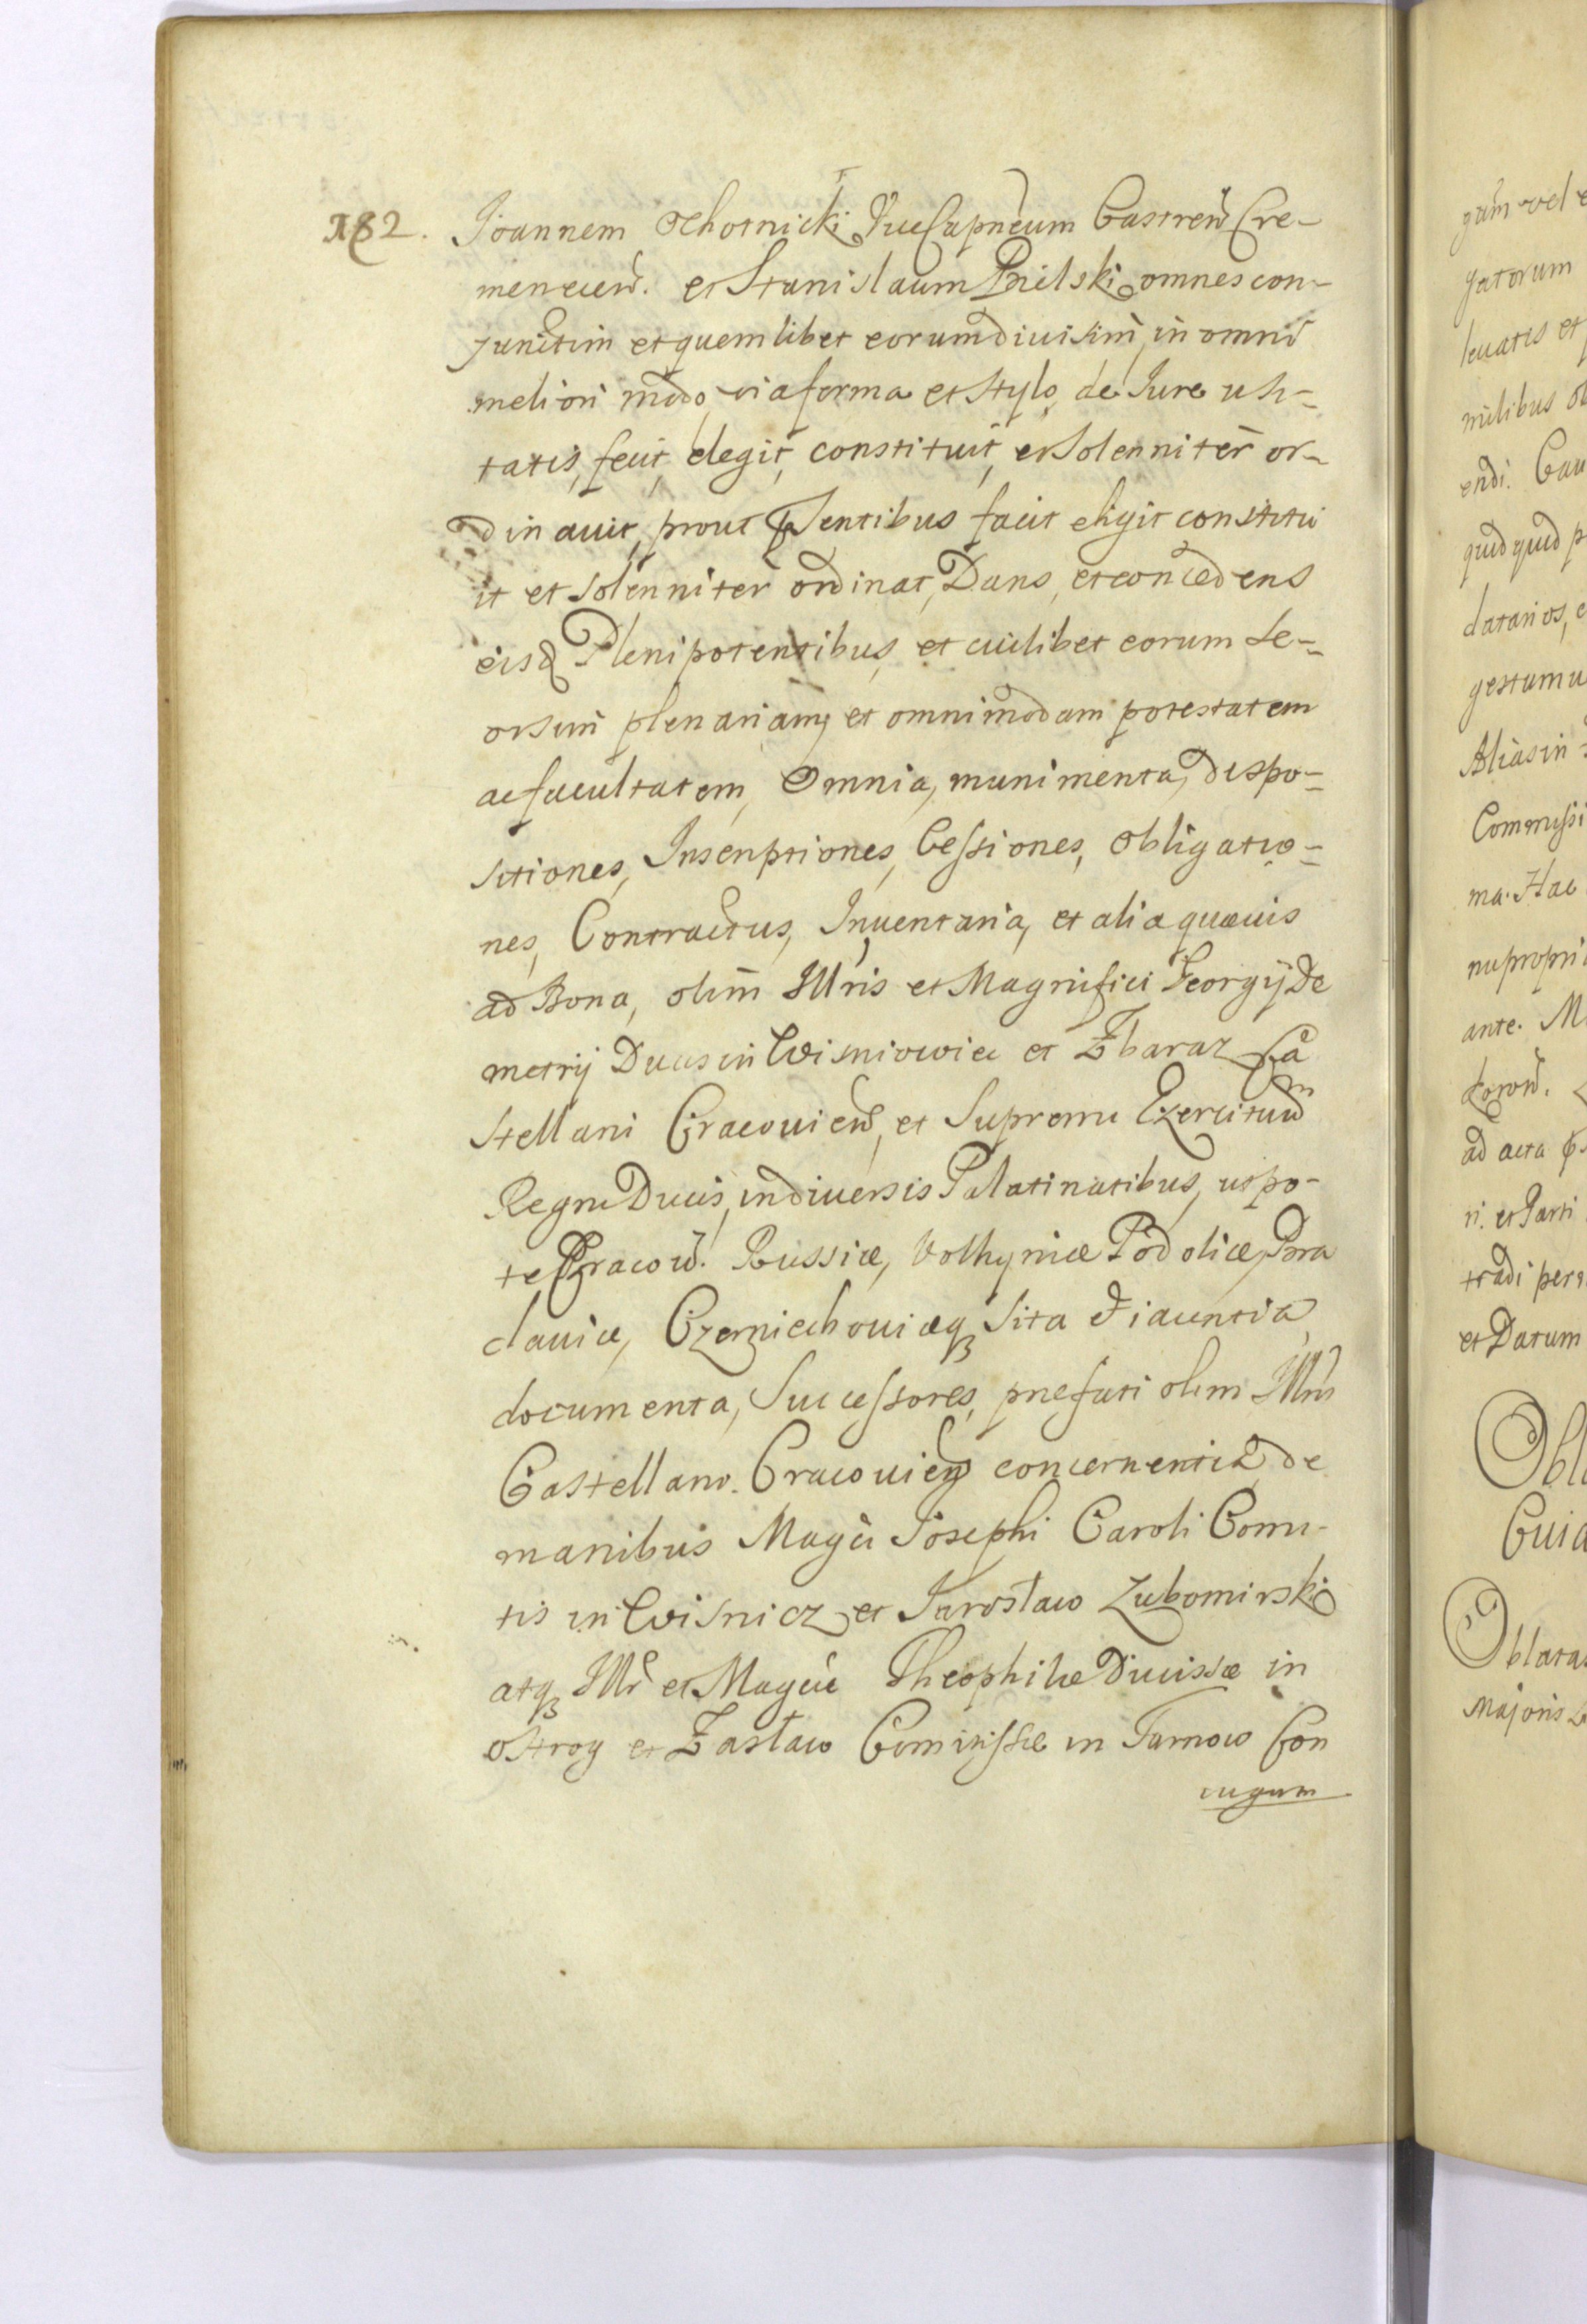 182. Joannem Ochotnicki ViceCapneum Castren Cre-
menecen. et Stanislaum Bielski omnes con-
junctim et quemlibet eorum divisim, in omni
meliori modo, via forma et stylo, de Jure usi-
tatis, fecit, elegit, constituit, et solenniter or-
dinavit, prout psentibus facit eligit constitu
it et solenniter ordinat, Dans, et concedens
eisd Plenipotentibus, et cuilibet eorum se-
orsim plenariam, et omnimodam potestatem
ac facultatem, Omnia, munimenta, dispo-
sitiones, Inscriptiones, Cessiones, Obligatio-
nes, Contractus, Inventaria, et alia quævis
ad Bona, olim Illris et Magnifici Georgij De
metrij Ducis in Wisniowiec et Zbaraz Ca
stellani Cracovien, et Supremi Exercituum
Regni Ducis, in diversis Palatinatibus, utpo-
te Cracov. Russiæ, Volhyniæ Podoliæ, Bra
claviæ, Czerniechoviæq sita et iacentia,
documenta, Successores, præfati olim Illris
Castellani. Cracovien concernentia, de
manibus Magci Josephi Caroli Comi-
tis in Wisnicz et Jarosław Lubomirski
atq Illr et Magcæ Theophilæ Ducissæ in
Ostrog et Zasław Comitissæ in Tarnow Con
iugum
gum vel
gatorum
levatis et
milibus
endi.
quidquid
datarios,
gestum
Alias in
Commissi
ma. Hac
nu propri
ante.
ad acta
ri. et Parti
tradi per
et Datum
Obl
Cuia
Oblata
Majoris